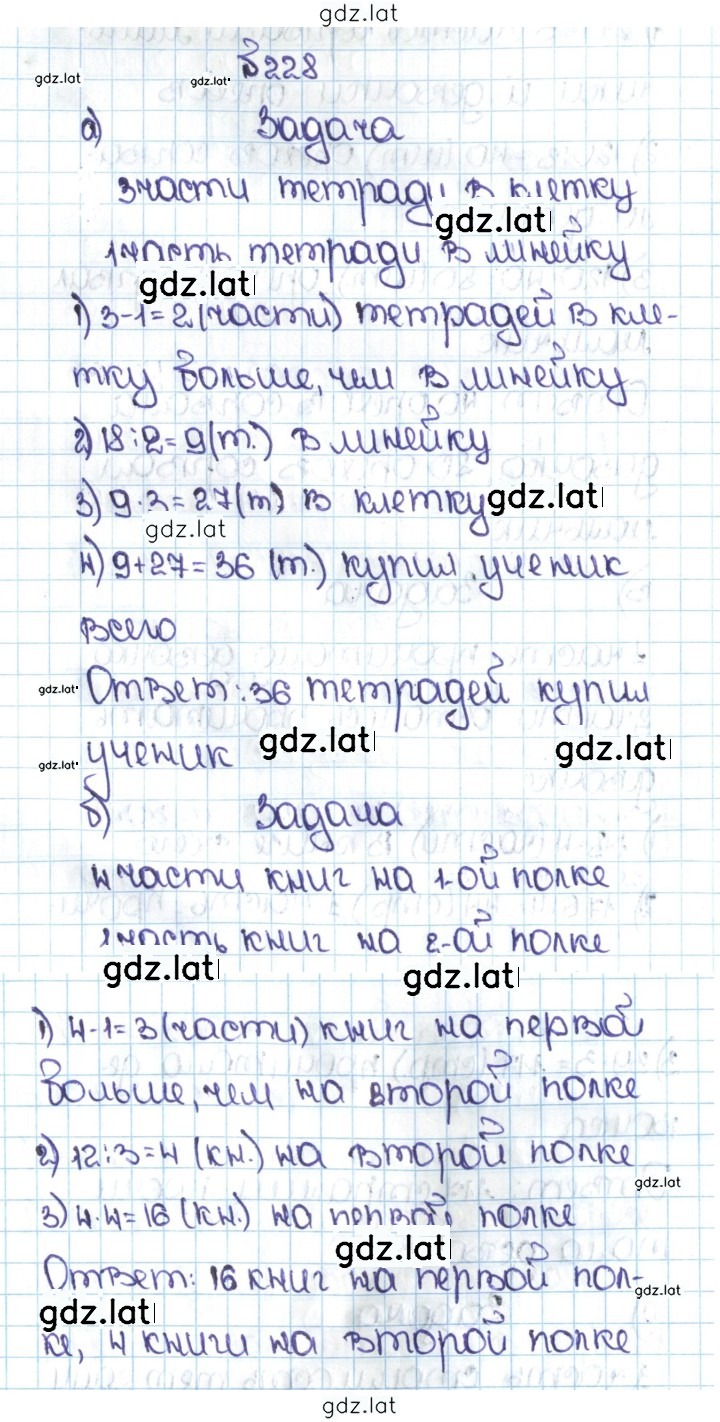 gdz.lat
gdz.lat gdz.lat 228
а) Задача
3 части тетради в клетку
gdz.lat
1 часть тетради в линейку
gdz.lat
1) 3-1=2 (части) тетрадей в кле-
тку больше, чем в линейку
2) 18:2=9(т.) в линейку
3) 9·3=27(т) в клетку gdz.lat
gdz.lat
4) 9+27=36 (т.) купил ученик
всего
gdz.lat Ответ: 36 тетрадей купил
gdz.lat ученик gdz.lat gdz.lat
б) Задача
4 части книг на 1-ой полке
1 часть книг на 2-ой полке
gdz.lat gdz.lat
1) 4-1=3 (части) книг на первой
больше, чем на второй полке
2) 12:3=4 (кн.) на второй полке
gdz.lat
3) 4·4=16 (кн.) на первой полке
gdz.lat
Ответ: 16 книг на первой пол-
gdz.lat
gdz.lat
ке, 4 книги на второй полке
gdz.lat